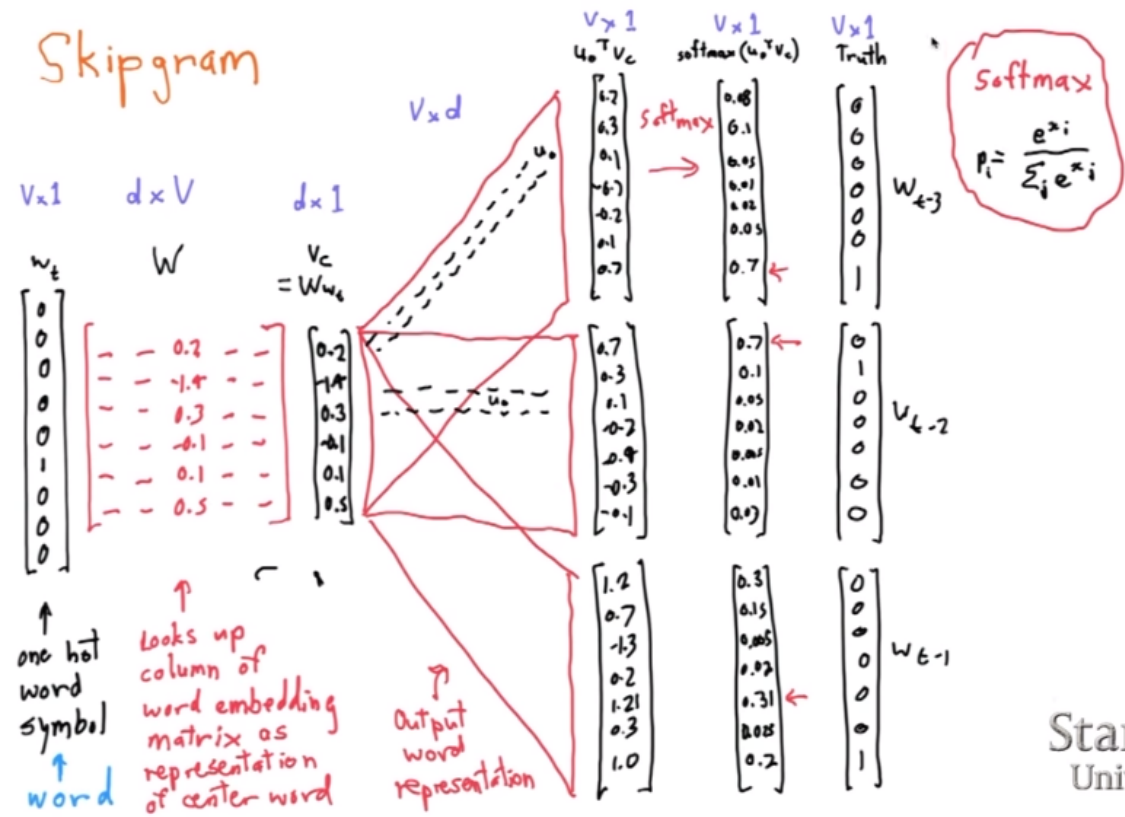 Skipgram
V×1
d×V
d×1
V×d
V×1
V×1
V×1
w_t
W
V_c
= Ww_t
u_o^T v_c
softmax(u_o^T v_c)
Truth
softmax
p_i = e^{x_i} / Σ_j e^{x_j}
softmax
0
0
0
0
0
1
0
0
0
- - 0.2 - -
- - -1.4 - -
- - 0.3 - -
- - -0.1 - -
- - 0.1 - -
- - 0.5 - -
0.2
-1.4
0.3
-0.1
0.1
0.5
u_o
u_o
0.3
0.1
-0.2
0.1
0.7
0.1
0.05
0.01
0.02
0.05
0.7
0
0
0
0
0
0
1
w_t-3
0.7
0.3
0.1
-0.2
-0.3
-0.1
0.7
0.1
0.05
0.02
0.005
0.01
0.03
0
1
0
0
0
0
0
w_t-2
1.2
0.7
-1.3
0.2
1.21
0.3
1.0
0.3
0.15
0.005
0.02
0.31
0.025
0.2
0
0
0
0
0
0
1
w_t-1
one hot
word
symbol
word
Looks up
column of
word embedding
matrix as
representation
of center word
Output
word
representation
Star
Uni